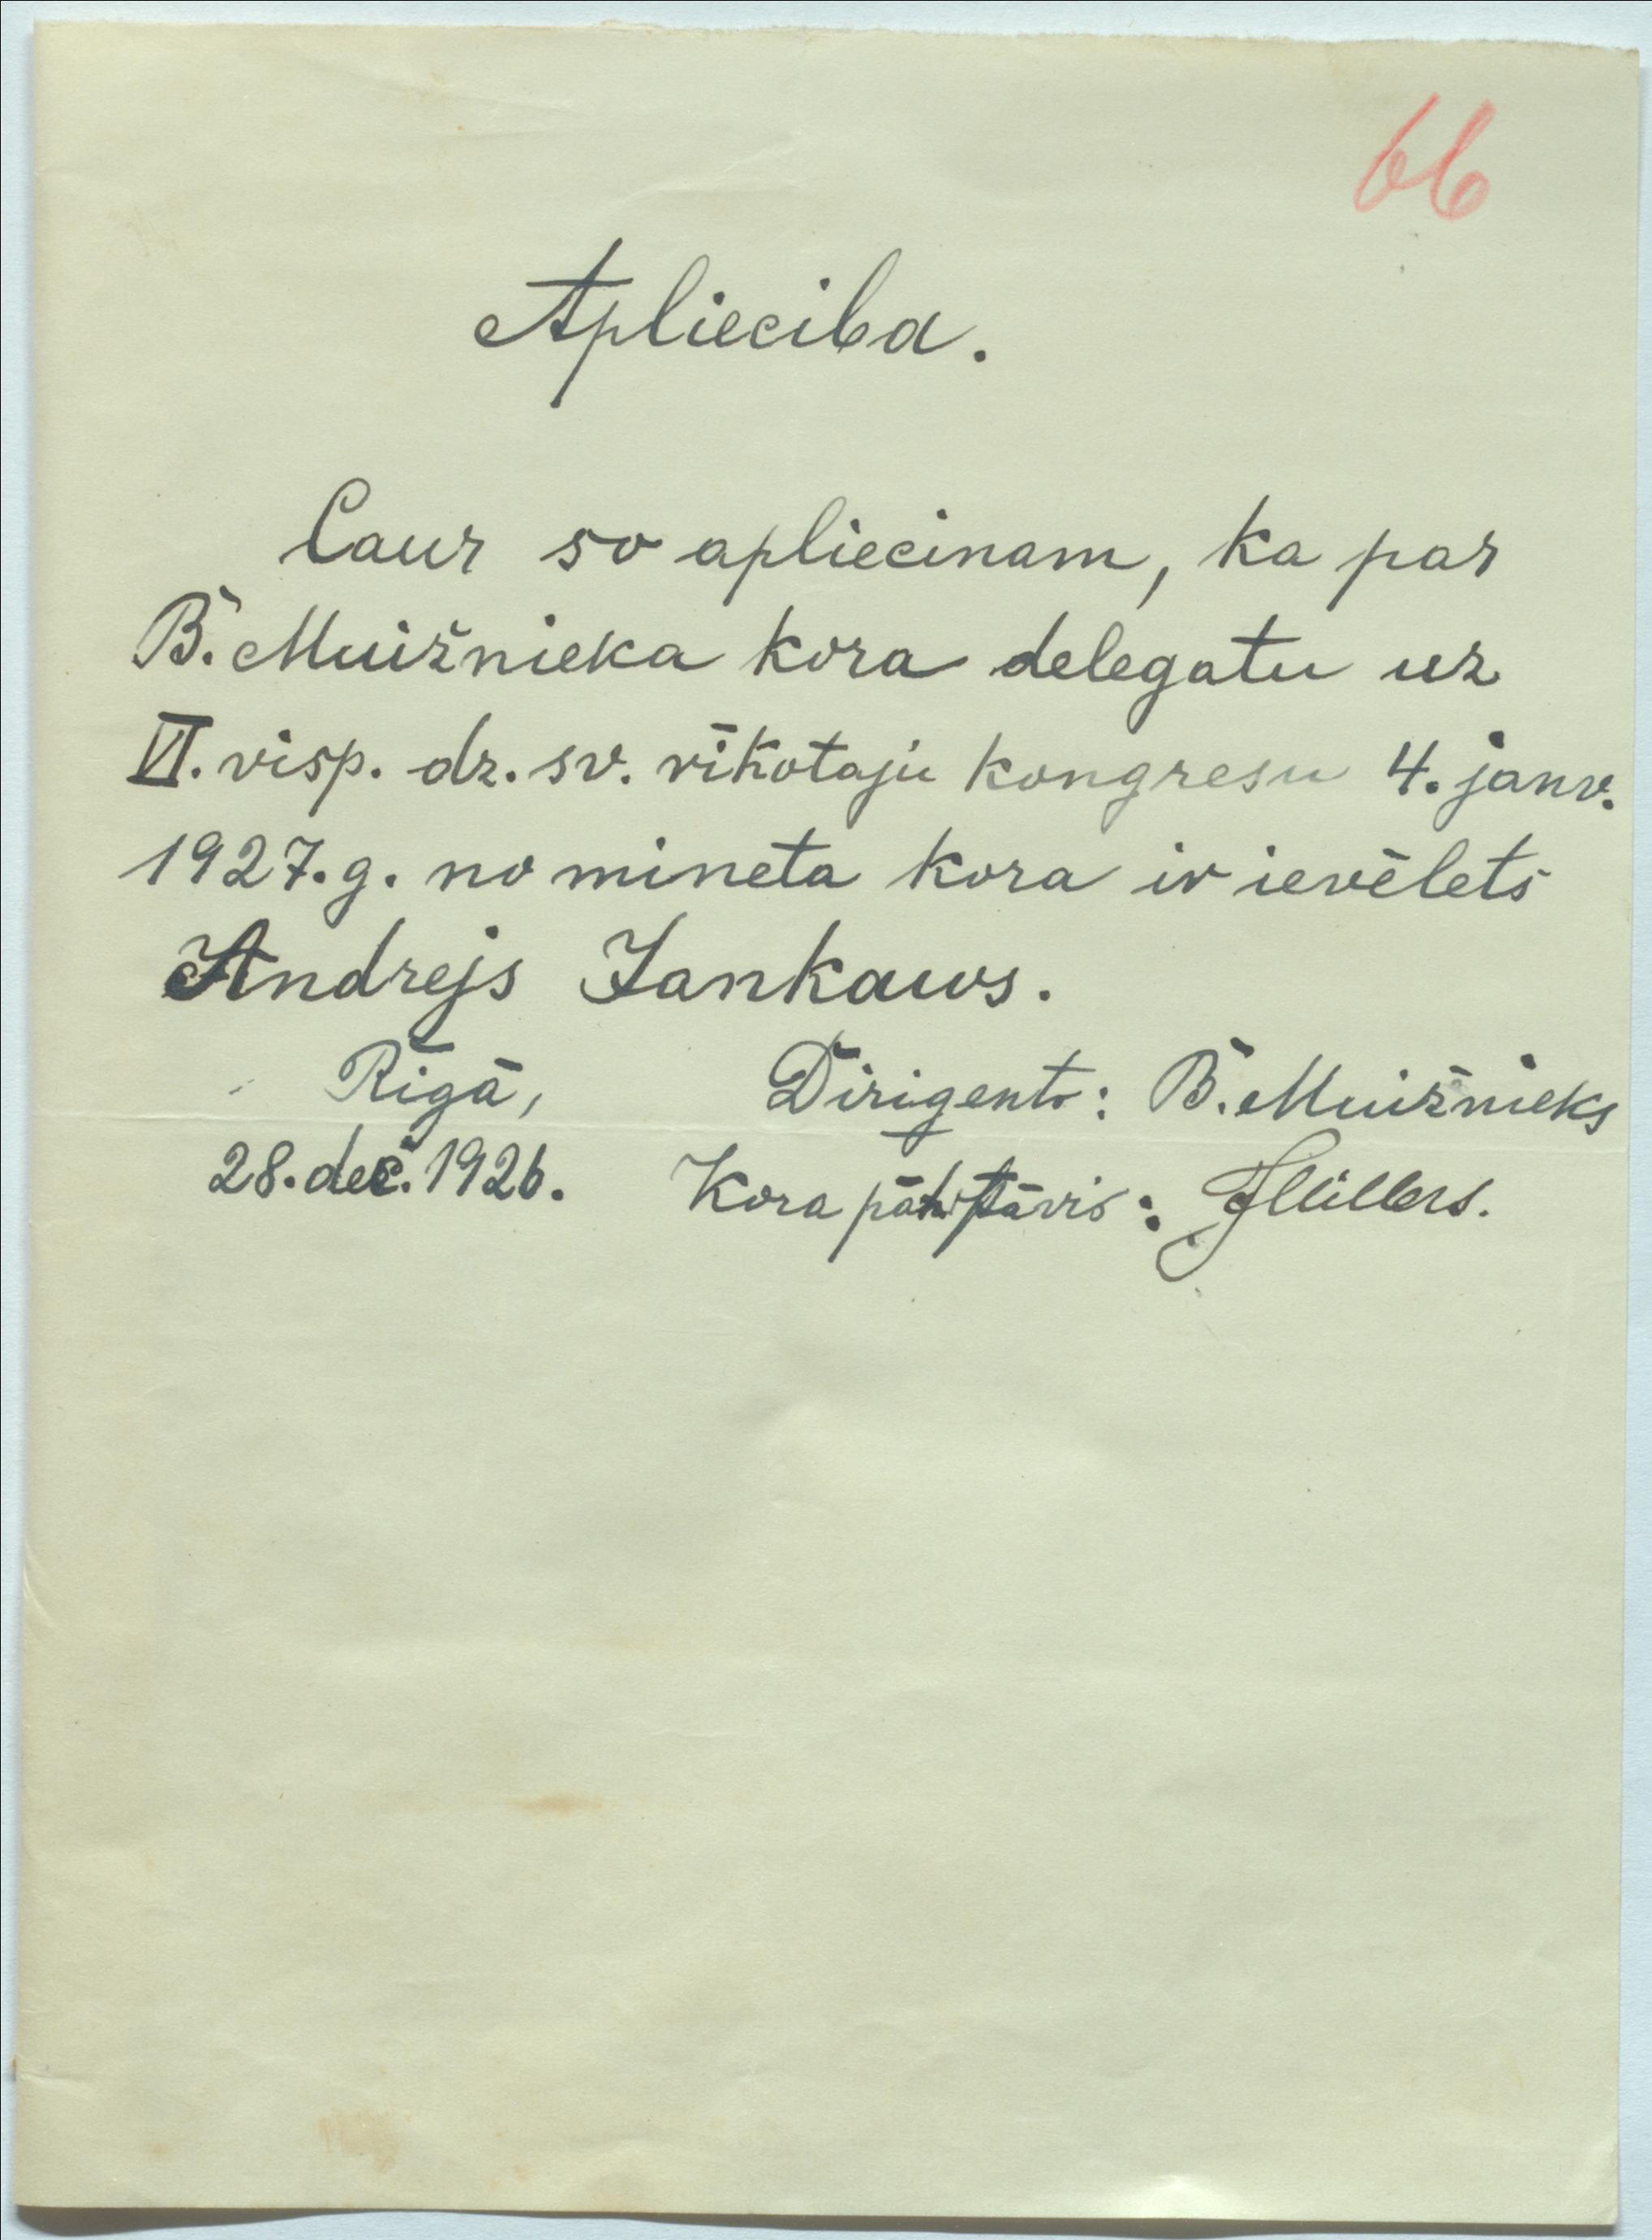 66
Aplieciba.
Caur so apliecinam, ka par
B. Muižnieka kora delegatu uz
VI. visp. dz. sv. rīkotaju kongresu 4. janv.
1927. g. no mineta kora ir ievēlets
Andrejs Jankaws.
Rīgā,
Dirigents: B. Muižnieks
28. dec. 1926.
Kora pārstāvis: